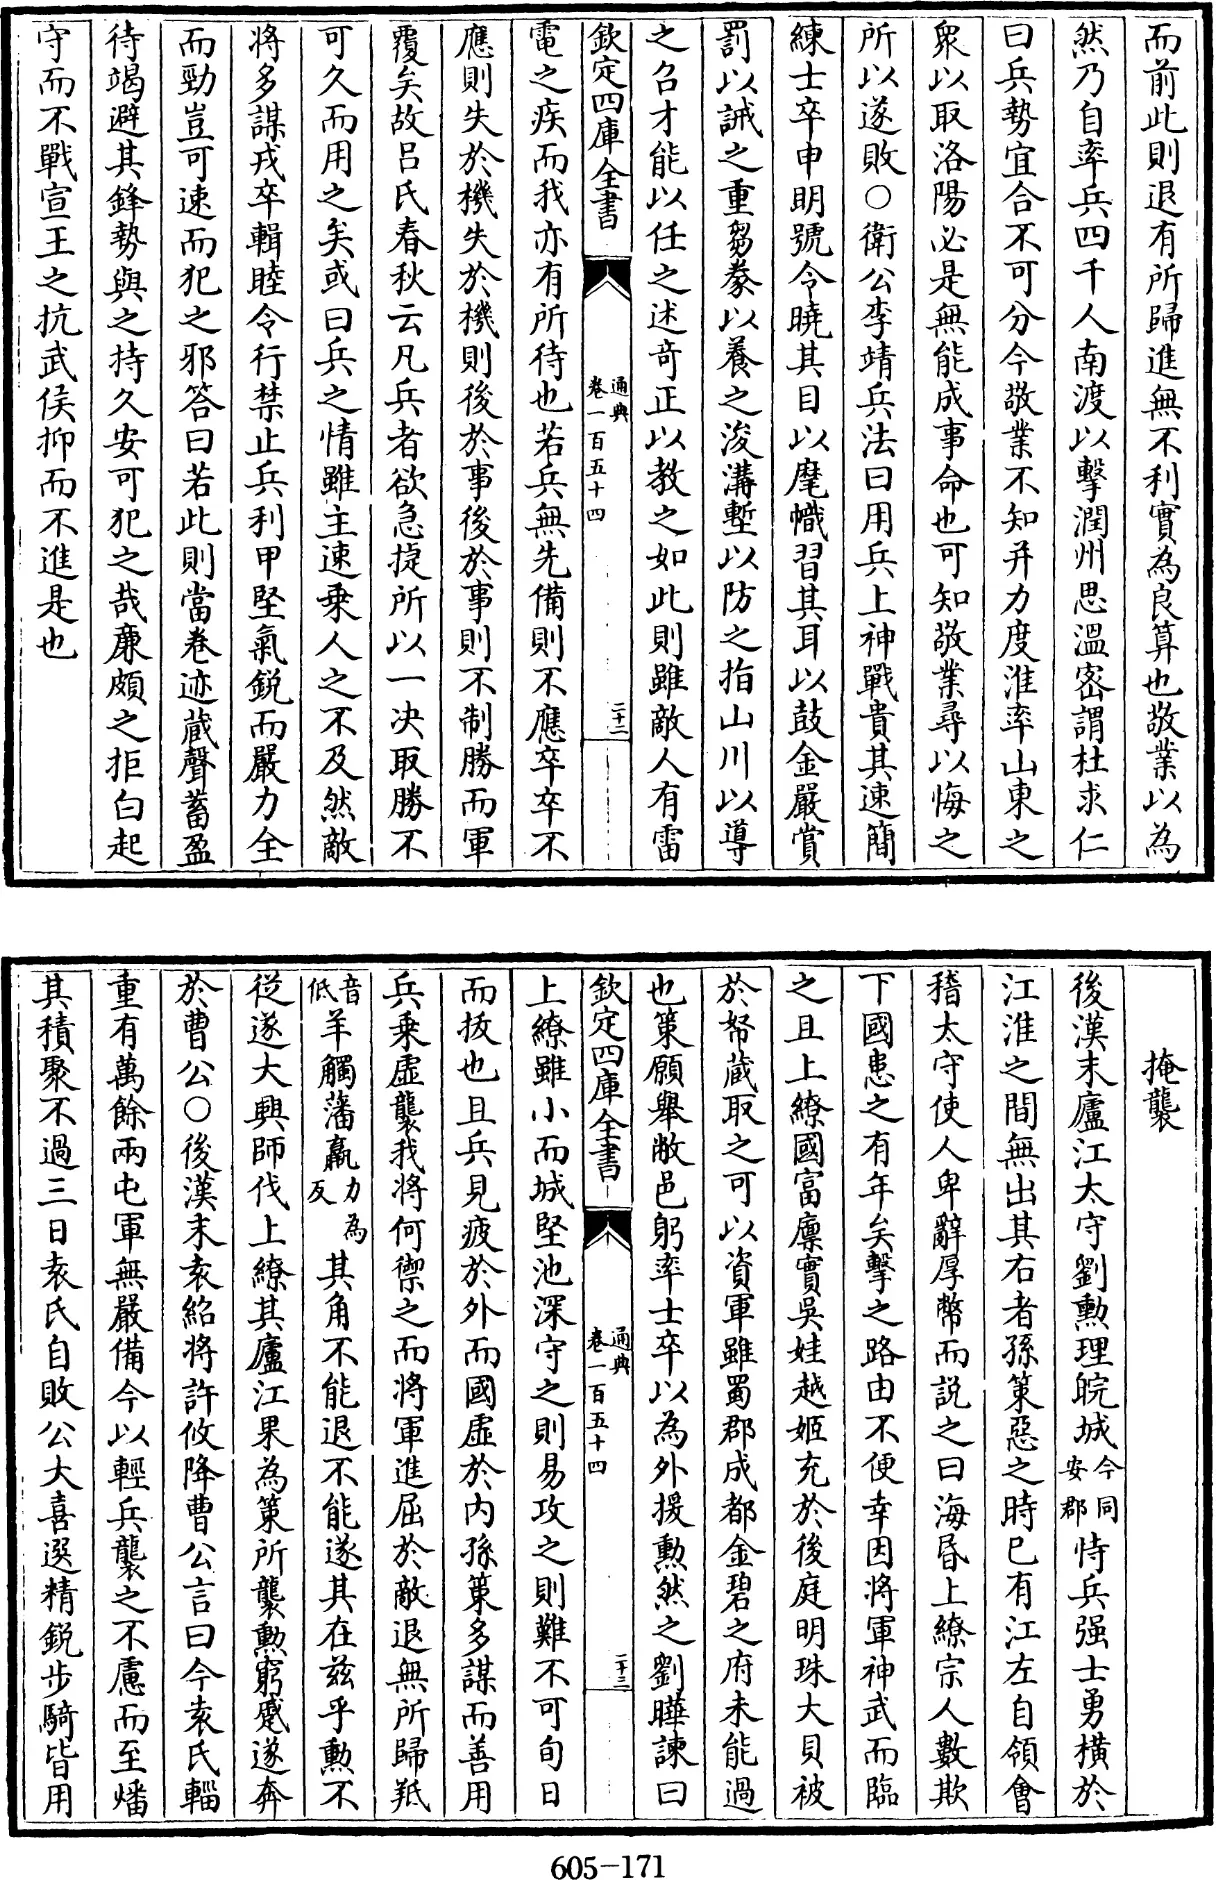 而前此則退有所歸進無不利實為良算也敬業以為
然乃自率兵四千人南渡以擊潤州思溫密謂杜求仁
曰兵勢宜合不可分今敬業不知并力度淮率山東之
衆以取洛陽必是無能成事命也可知敬業尋以悔之
所以遂敗○衛公李靖兵法曰用兵上神戰貴其速簡
練士卒申明號令曉其目以麾幟習其耳以鼓金嚴賞
罰以誡之重芻豢以養之浚溝塹以防之指山川以導
之召才能以任之述竒正以教之如此則雖敵人有雷
欽定四庫全書
通典
卷一百五十四
二十二
電之疾而我亦有所待也若兵無先備則不應卒卒不
應則失於機失於機則後於事後於事則不制勝而軍
覆矣故吕氏春秋云凡兵者欲急㨗所以一决取勝不
可久而用之矣或曰兵之情雖主速乗人之不及然敵
將多謀戎卒輯睦令行禁止兵利甲堅氣鋭而嚴力全
而勁豈可速而犯之邪答曰若此則當卷迹蔵聲蓄盈
待竭避其鋒勢與之持久安可犯之哉廉頗之拒白起
守而不戰宣王之抗武侯抑而不進是也
掩襲
後漢末廬江太守劉勲理皖城今同安郡恃兵强士勇横於
江淮之間無出其右者孫策惡之時已有江左自領會
稽太守使人卑辭厚幣而説之曰海昏上繚宗人數欺
下國患之有年矣擊之路由不便幸因將軍神武而臨
之且上繚國富廪實吳娃越姬充於後庭明珠大貝被
於帑蔵取之可以資軍雖蜀郡成都金碧之府未能過
也策願舉敝邑躬率士卒以為外援勲然之劉曄諫曰
欽定四庫全書
通典
卷一百五十四
二十三
上繚雖小而城堅池深守之則易攻之則難不可旬日
而拔也且兵見疲於外而國虛於内孫策多謀而善用
兵乗虛襲我將何禦之而將軍進屈於敵退無所歸羝
音低羊觸藩羸力為反其角不能退不能遂其在兹乎勲不
從遂大興師伐上繚其廬江果為策所襲勲窮蹙遂奔
於曹公○後漢末袁紹將許攸降曹公言曰今袁氏輜
重有萬餘兩屯軍無嚴備今以輕兵襲之不慮而至燔
其積聚不過三日袁氏自敗公大喜選精鋭步騎皆用
605-171